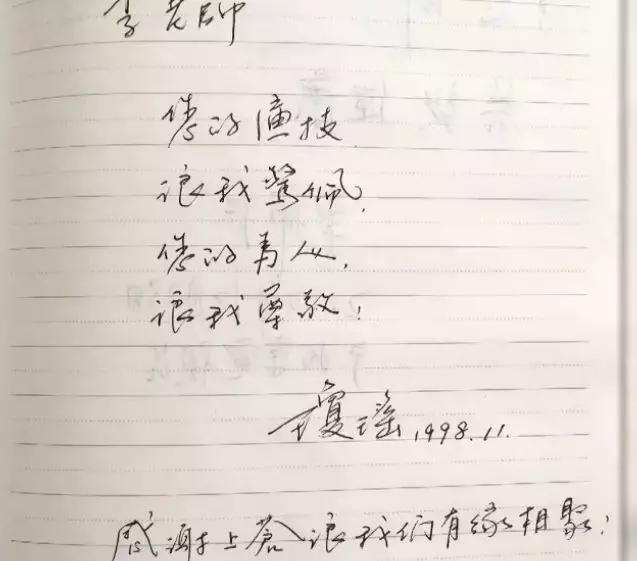 李老師
您的演技
讓我驚佩,
您的為人,
讓我尊敬!
瓊瑤 1998.11.
感謝上蒼讓我們有緣相聚!